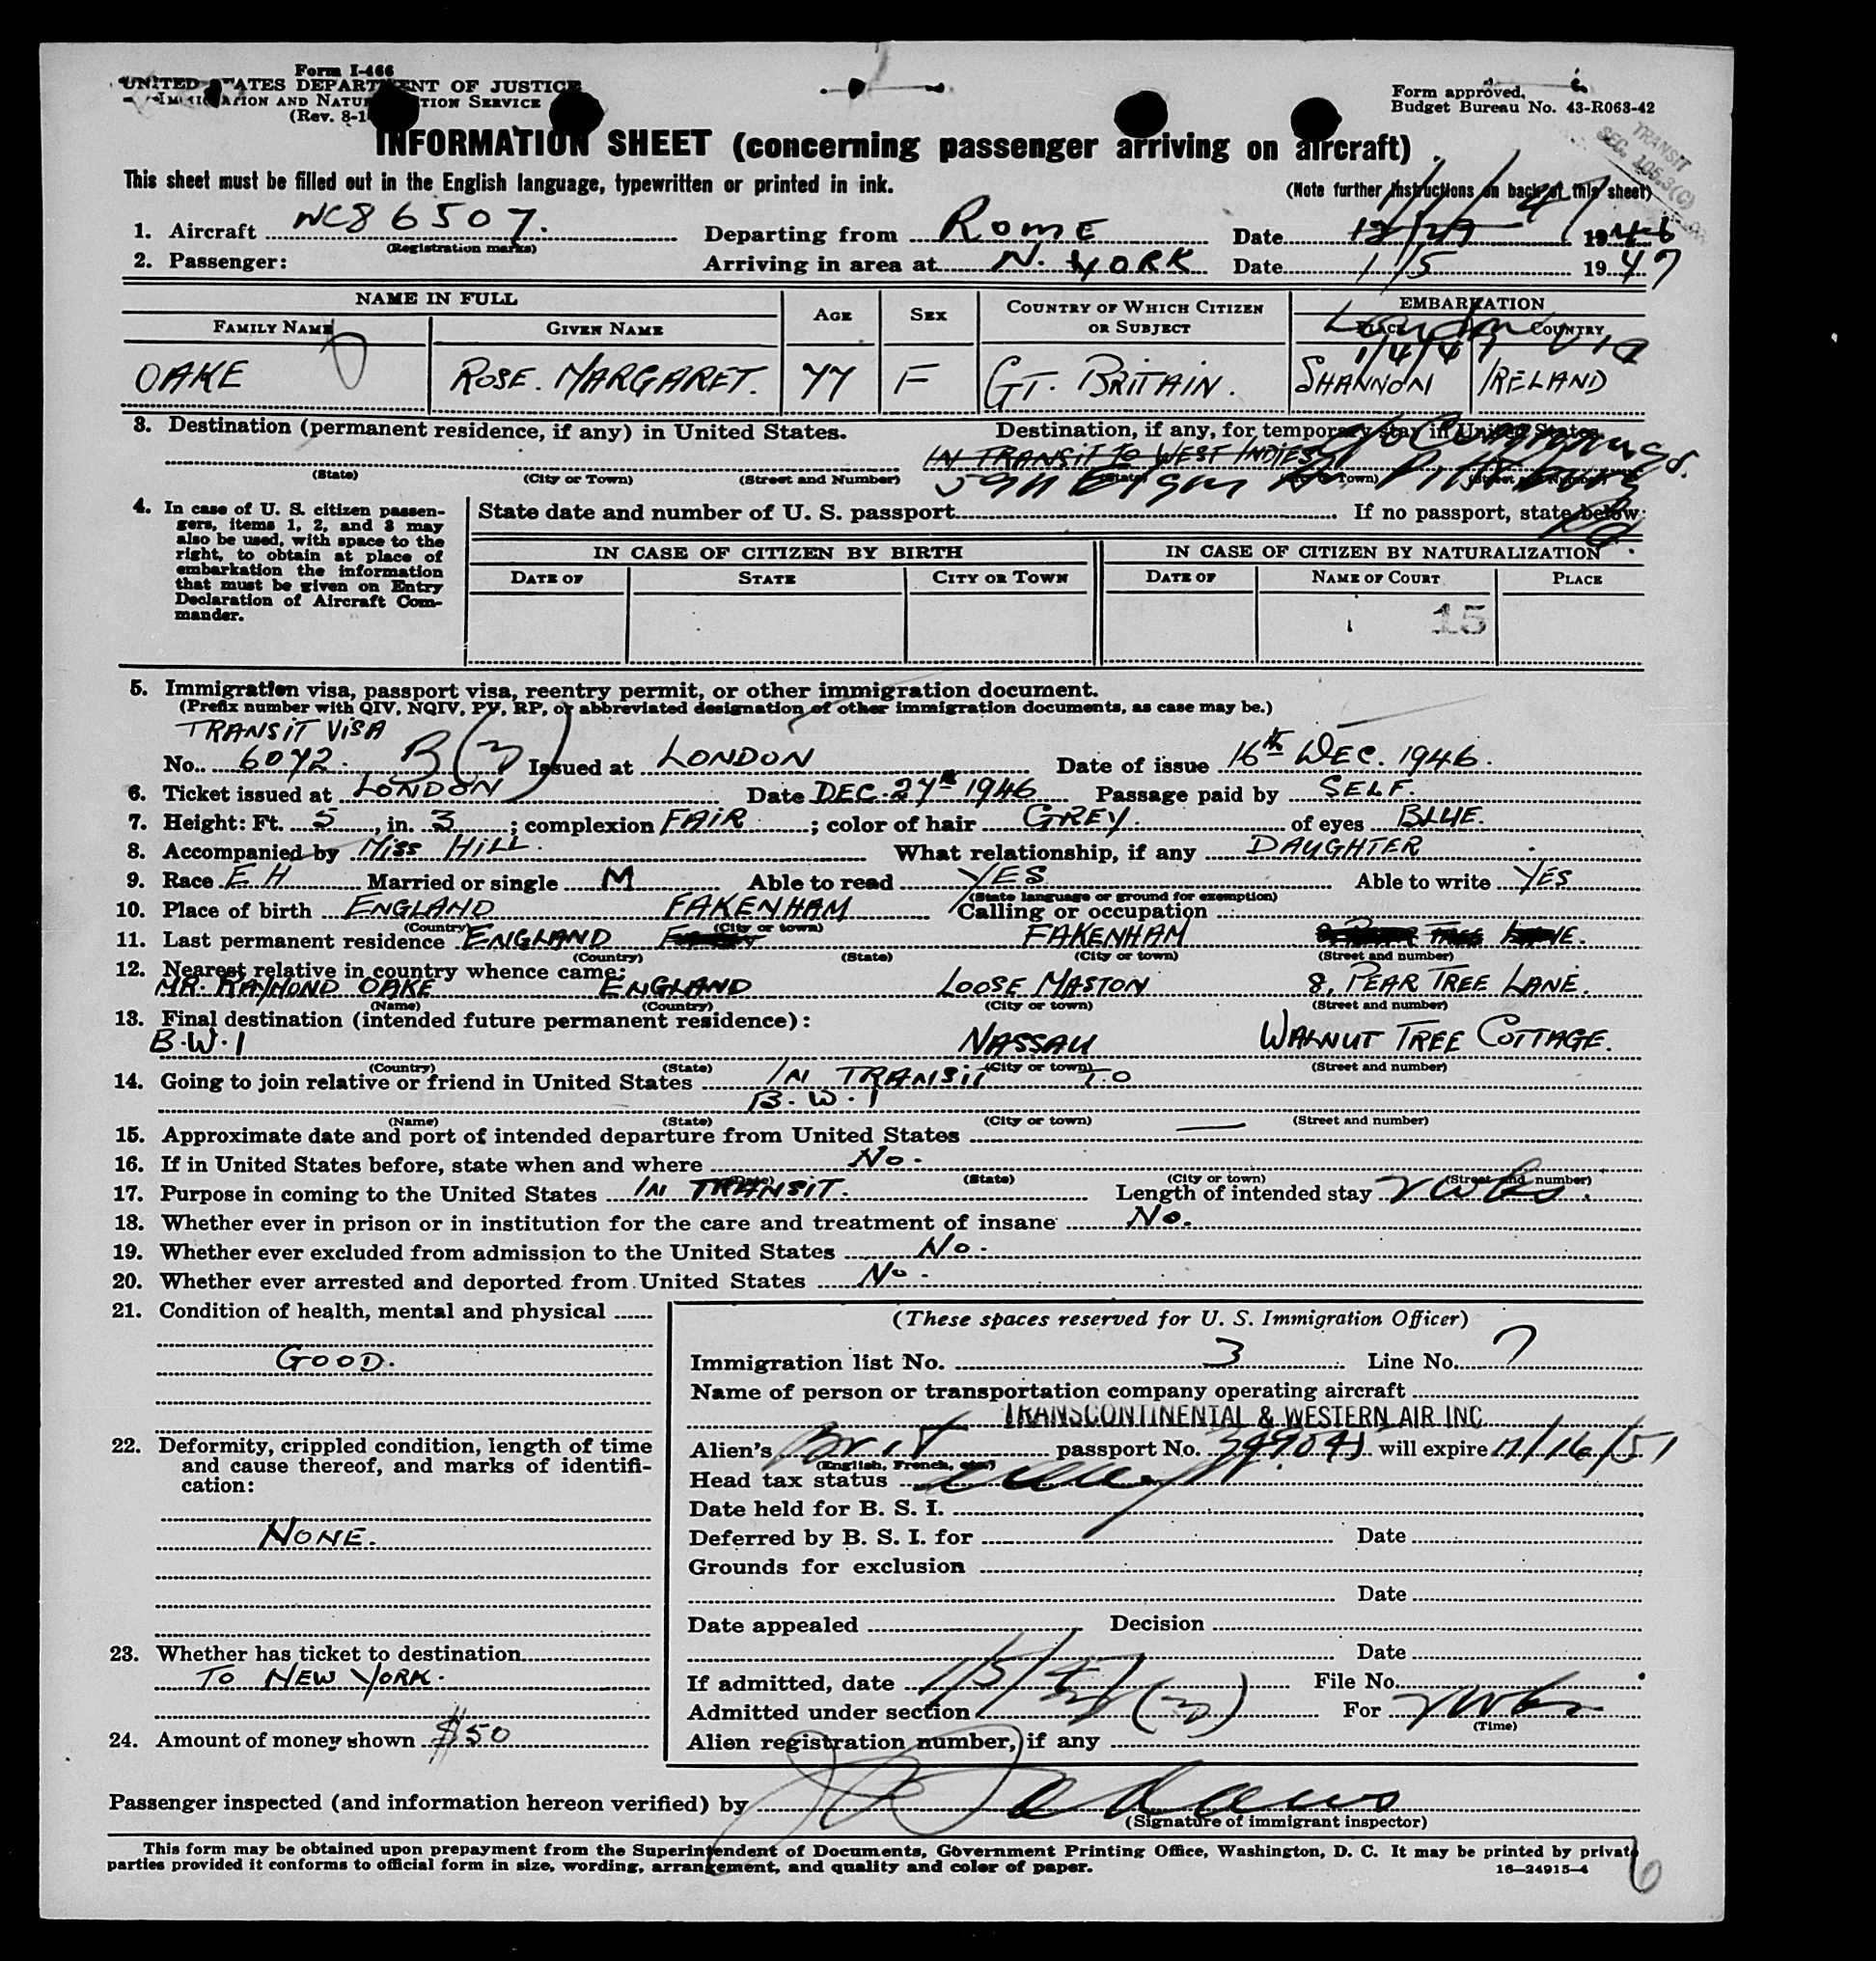 Form I-466
UNITED STATES DEPARTMENT OF JUSTICE
IMMIGRATION AND NATURALIZATION SERVICE
(Rev. 8-1
Form approved.
Budget Bureau No. 43-R063-42
TRANSIT
SEC. 105.3(C)
INFORMATION SHEET (concerning passenger arriving on aircraft)
This sheet must be filled out in the English language, typewritten or printed in ink.
(Note further instructions on back of this sheet)
1. Aircraft NC86507. Departing from ROME Date 12/27 1946
(Registration marks)
2. Passenger: Arriving in area at N. YORK Date 1/5 1947
NAME IN FULL AGE SEX COUNTRY OF WHICH CITIZEN OR SUBJECT EMBARKATION
FAMILY NAME GIVEN NAME PLACE COUNTRY
London via
1/4/47
OAKE ROSE. MARGARET. 77 F GT. BRITAIN. SHANNON IRELAND
3. Destination (permanent residence, if any) in United States. Destination, if any, for temporary stay in United States.
IN TRANSIT TO WEST INDIES
(State) (City or Town) (Street and Number) (State) (City or Town) (Street and Number)
4. In case of U. S. citizen passengers, items 1, 2, and 3 may also be used, with space to the right, to obtain at place of embarkation the information that must be given on Entry Declaration of Aircraft Commander.
State date and number of U. S. passport If no passport, state below:
IN CASE OF CITIZEN BY BIRTH IN CASE OF CITIZEN BY NATURALIZATION
DATE OF STATE CITY OR TOWN DATE OF NAME OF COURT PLACE
15
5. Immigration visa, passport visa, reentry permit, or other immigration document.
(Prefix number with QIV, NQIV, PV, RP, or abbreviated designation of other immigration documents, as case may be.)
TRANSIT VISA
No. 6072. B(3) Issued at LONDON Date of issue 16th DEC. 1946.
6. Ticket issued at LONDON Date DEC. 27th 1946 Passage paid by SELF.
7. Height: Ft. 5, in. 3; complexion FAIR; color of hair GREY. of eyes BLUE.
8. Accompanied by MISS HILL. What relationship, if any DAUGHTER
9. Race EH Married or single M Able to read YES Able to write YES
(State language or ground for exemption)
10. Place of birth ENGLAND FAKENHAM Calling or occupation
(Country) (City or town)
11. Last permanent residence ENGLAND FAKENHAM TREE LANE.
(Country) (State) (City or town) (Street and number)
12. Nearest relative in country whence came:
MR. RAYMOND OAKE ENGLAND LOOSE MASTON 8, PEAR TREE LANE.
(Name) (Country) (City or town) (Street and number)
13. Final destination (intended future permanent residence):
B.W.I NASSAU WALNUT TREE COTTAGE.
(Country) (State) (City or town) (Street and number)
14. Going to join relative or friend in United States IN TRANSIT TO
B.W.I
(Name) (State) (City or town) (Street and number)
15. Approximate date and port of intended departure from United States —
16. If in United States before, state when and where No.
(State) (City or town) (Street and number)
17. Purpose in coming to the United States IN TRANSIT. Length of intended stay 2 wks.
18. Whether ever in prison or in institution for the care and treatment of insane No.
19. Whether ever excluded from admission to the United States No.
20. Whether ever arrested and deported from United States No.
21. Condition of health, mental and physical
GOOD.
22. Deformity, crippled condition, length of time and cause thereof, and marks of identification:
NONE.
23. Whether has ticket to destination
TO NEW YORK.
24. Amount of money shown $50
(These spaces reserved for U. S. Immigration Officer)
Immigration list No. 3 Line No. 7
Name of person or transportation company operating aircraft
TRANSCONTINENTAL & WESTERN AIR INC
Alien's Brit passport No. will expire /16/51
(English, French, etc.)
Head tax status
Date held for B. S. I.
Deferred by B. S. I. for Date
Grounds for exclusion
Date
Date appealed Decision
Date
If admitted, date 1/5/47 File No.
Admitted under section 3(3) For 2 wks
(Time)
Alien registration number, if any
Passenger inspected (and information hereon verified) by Adams
(Signature of immigrant inspector)
This form may be obtained upon prepayment from the Superintendent of Documents, Government Printing Office, Washington, D. C. It may be printed by private
parties provided it conforms to official form in size, wording, arrangement, and quality and color of paper.
16—24915-4
6